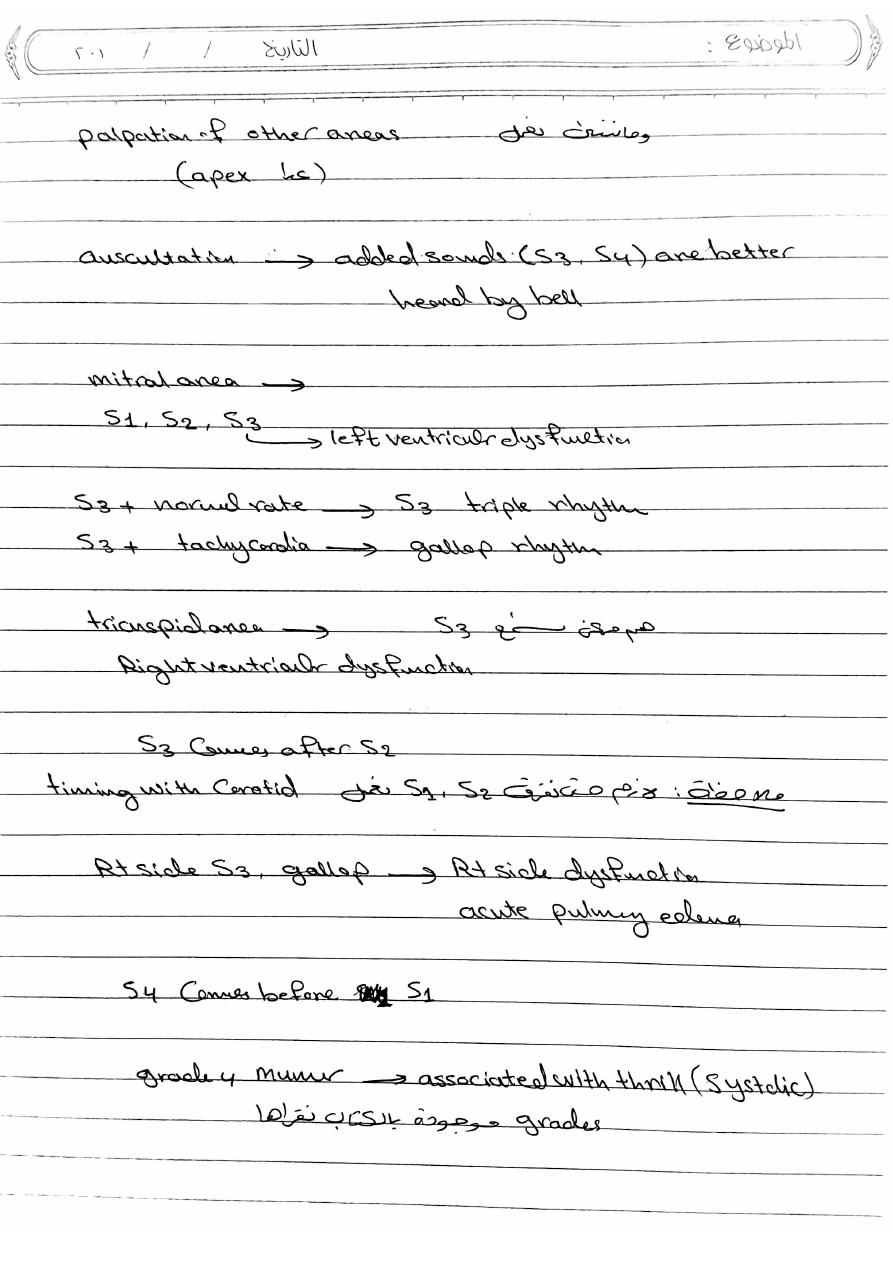 الموضوع : التاريخ / / ٢٠١
palpation of other areas وماننسى نعمل
(apex عدا)
auscultation → added sounds (S3, S4) are better
heard by bell
mitral area →
S1, S2, S3
→ left ventriculr dysfunction
S3 + normal rate → S3 triple rhythm
S3 + tachycardia → gallop rhythm
tricuspid area → S3 نسمع
Right ventriculr dysfunction
S3 Comes after S2
ملاحظة : لازم S1, S2 نعمل timing with Carotid
Rt side S3, gallop → Rt side dysfunction
acute pulmry edema
S4 Comes before S1
grade 4 mumur → associated with thrill (Systolic)
grades موجودة بالكتاب نقراها